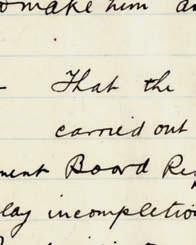 make him
That the
carried out
ment Board Re
lay incompletio